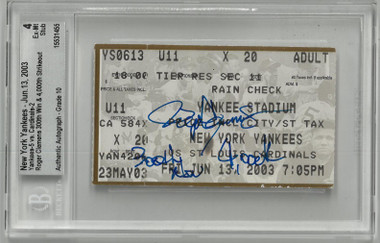 4
Ex-Mt
Stub
15531455
New York Yankees - Jun.13, 2003
Yankees-5 vs. Cardinals-2
Roger Clemens 300th Win & 4,000th Strikeout
Authentic Autograph - Grade 10
YS0613 U11 X 20 ADULT
18.00 TIER RES SEC 11
RAIN CHECK
U11 YANKEE STADIUM
CA 584X CITY/ST TAX
X 20 NEW YORK YANKEES
YAN420 VS ST LOUIS CARDINALS
23MAY03 FRI JUN 13, 2003 7:05PM